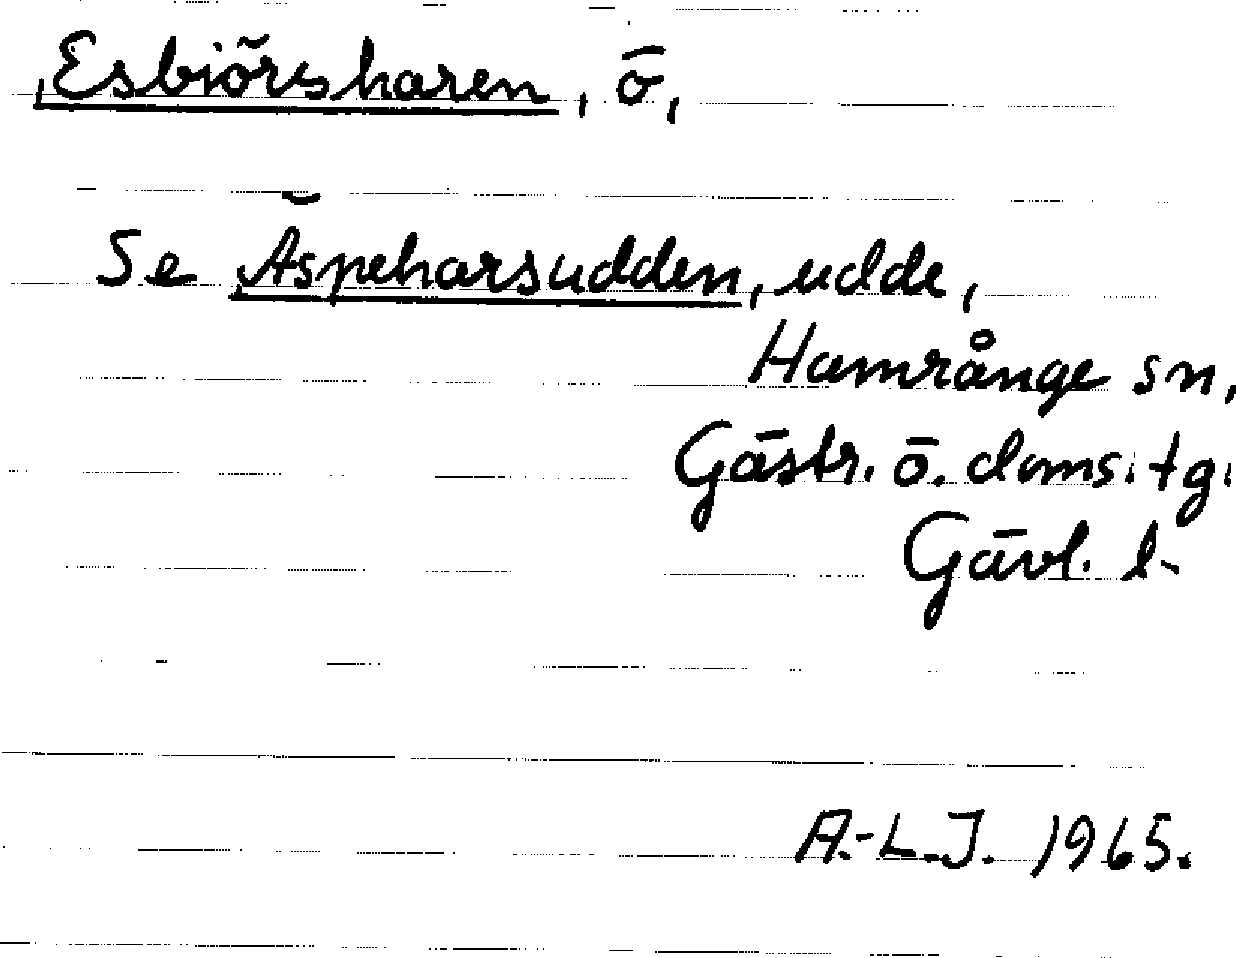 Esbiörsharen, ö,
Se Äspeharsudden, udde,
Hamrånge sn,
Gästr. ö. doms. tg.
Gävl. l.
A.-L.J. 1965.